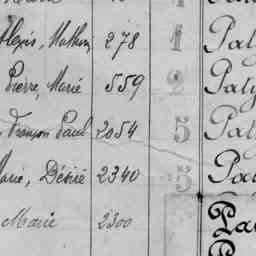 Alexis, Mathurin 278 1 Paty
Pierre, Marié 559 2 Paty
François Paul 2054 5 Paty
Marie, Désiré 2340 5 Pa
Marie 2300 Pa